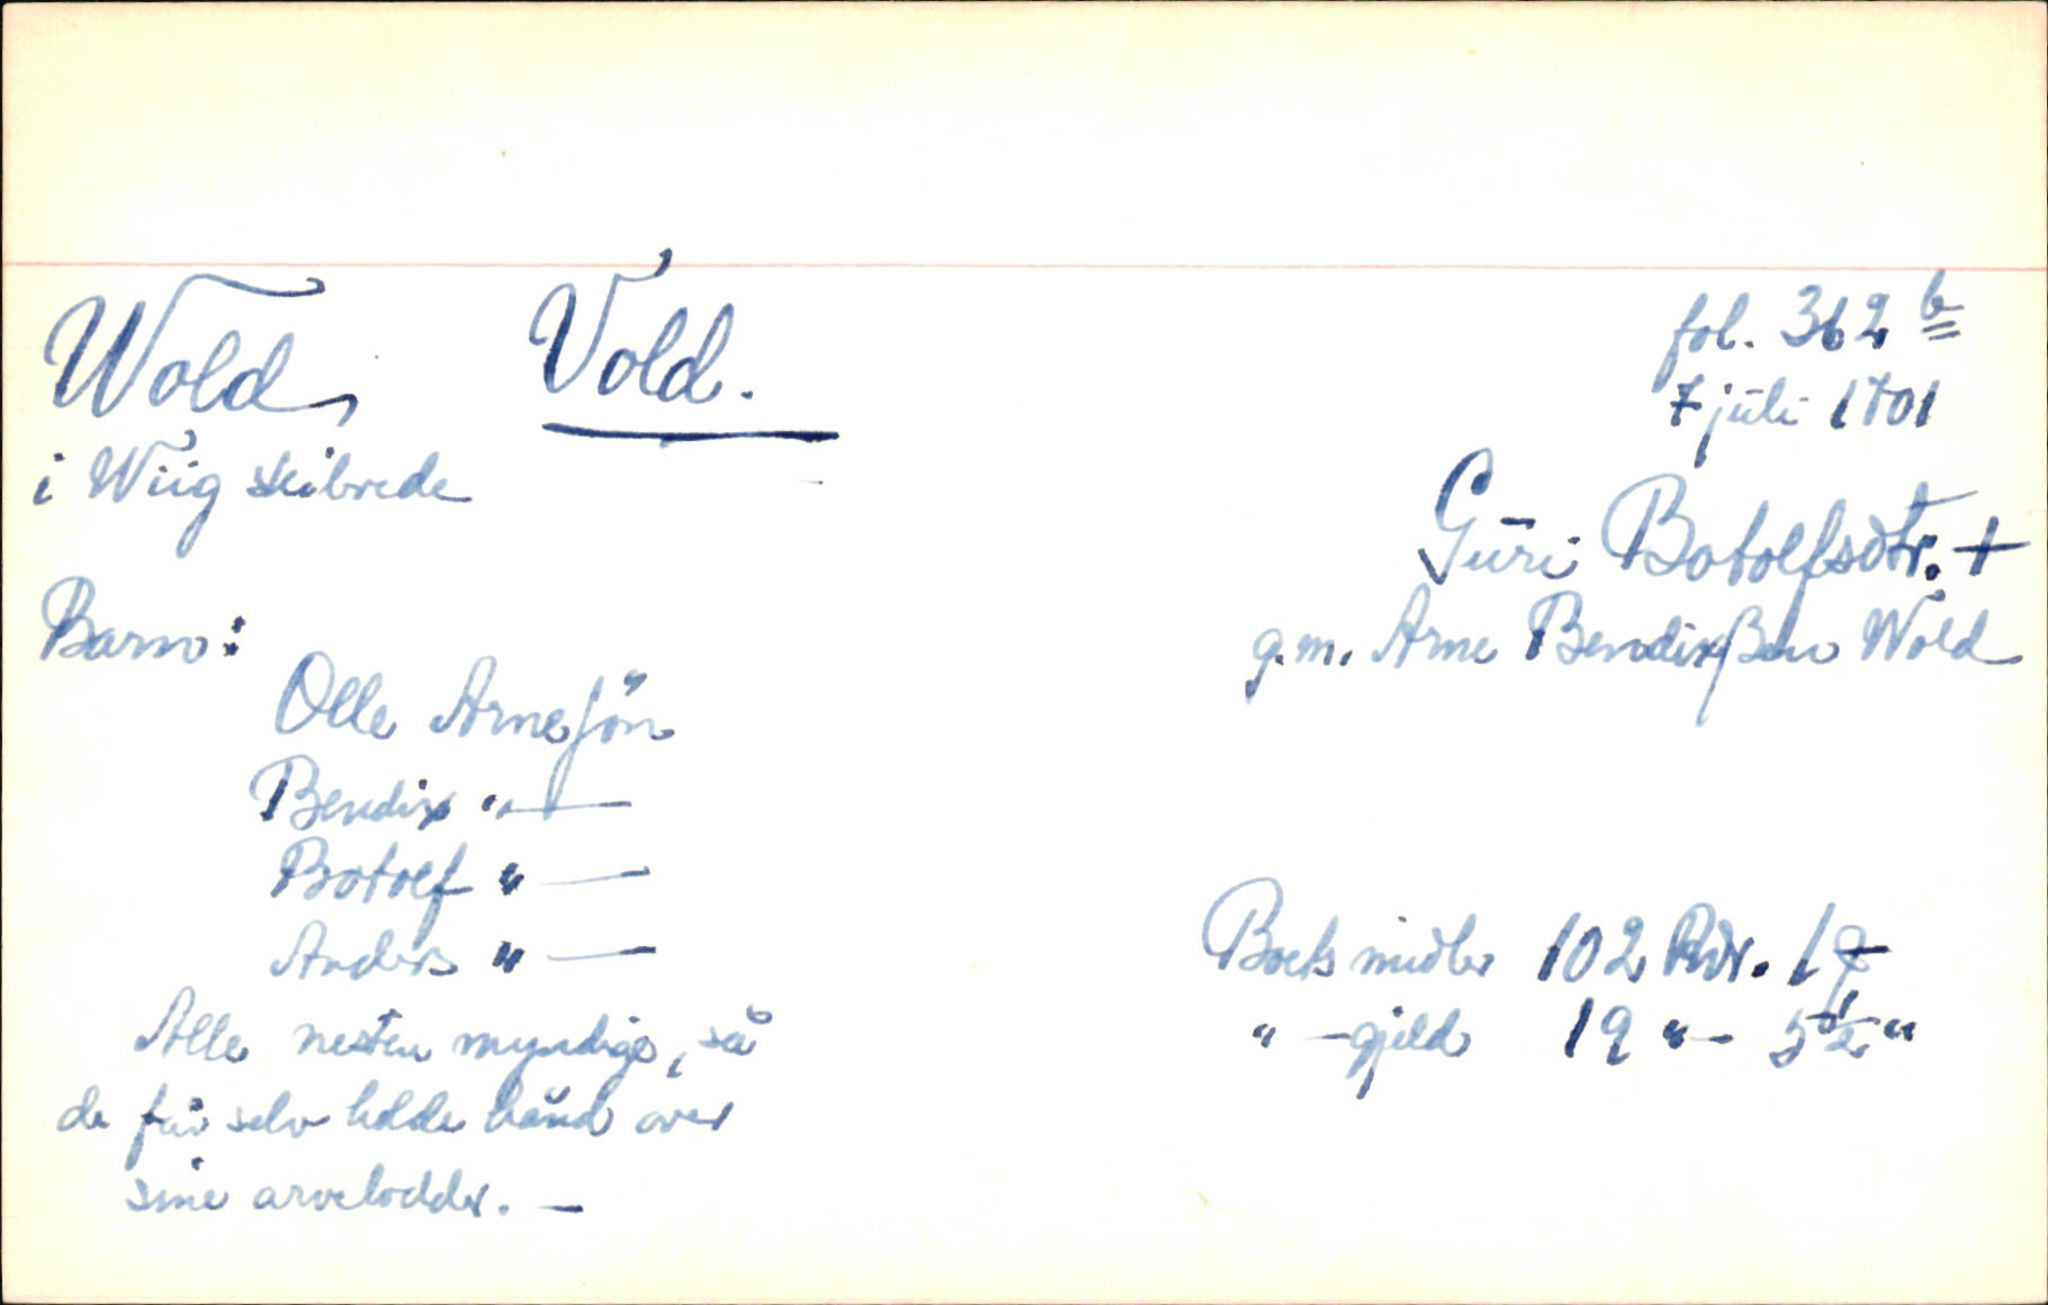 Wold, Vold.
fol. 362 b
7 juli 1701
i Wiig skibrede
Guri Botolfsdtr. +
g.m. Arne Bendixßen Wold
Barn:
Olle Arnesøn
Bendix " —
Botolf " —
Anders " —
Alle nesten myndige, så
de får selv holde hånd over
sine arvelodder. —
Boets midler 102 Rdr. 1
" - gjeld 19 " - 5 1/2 "